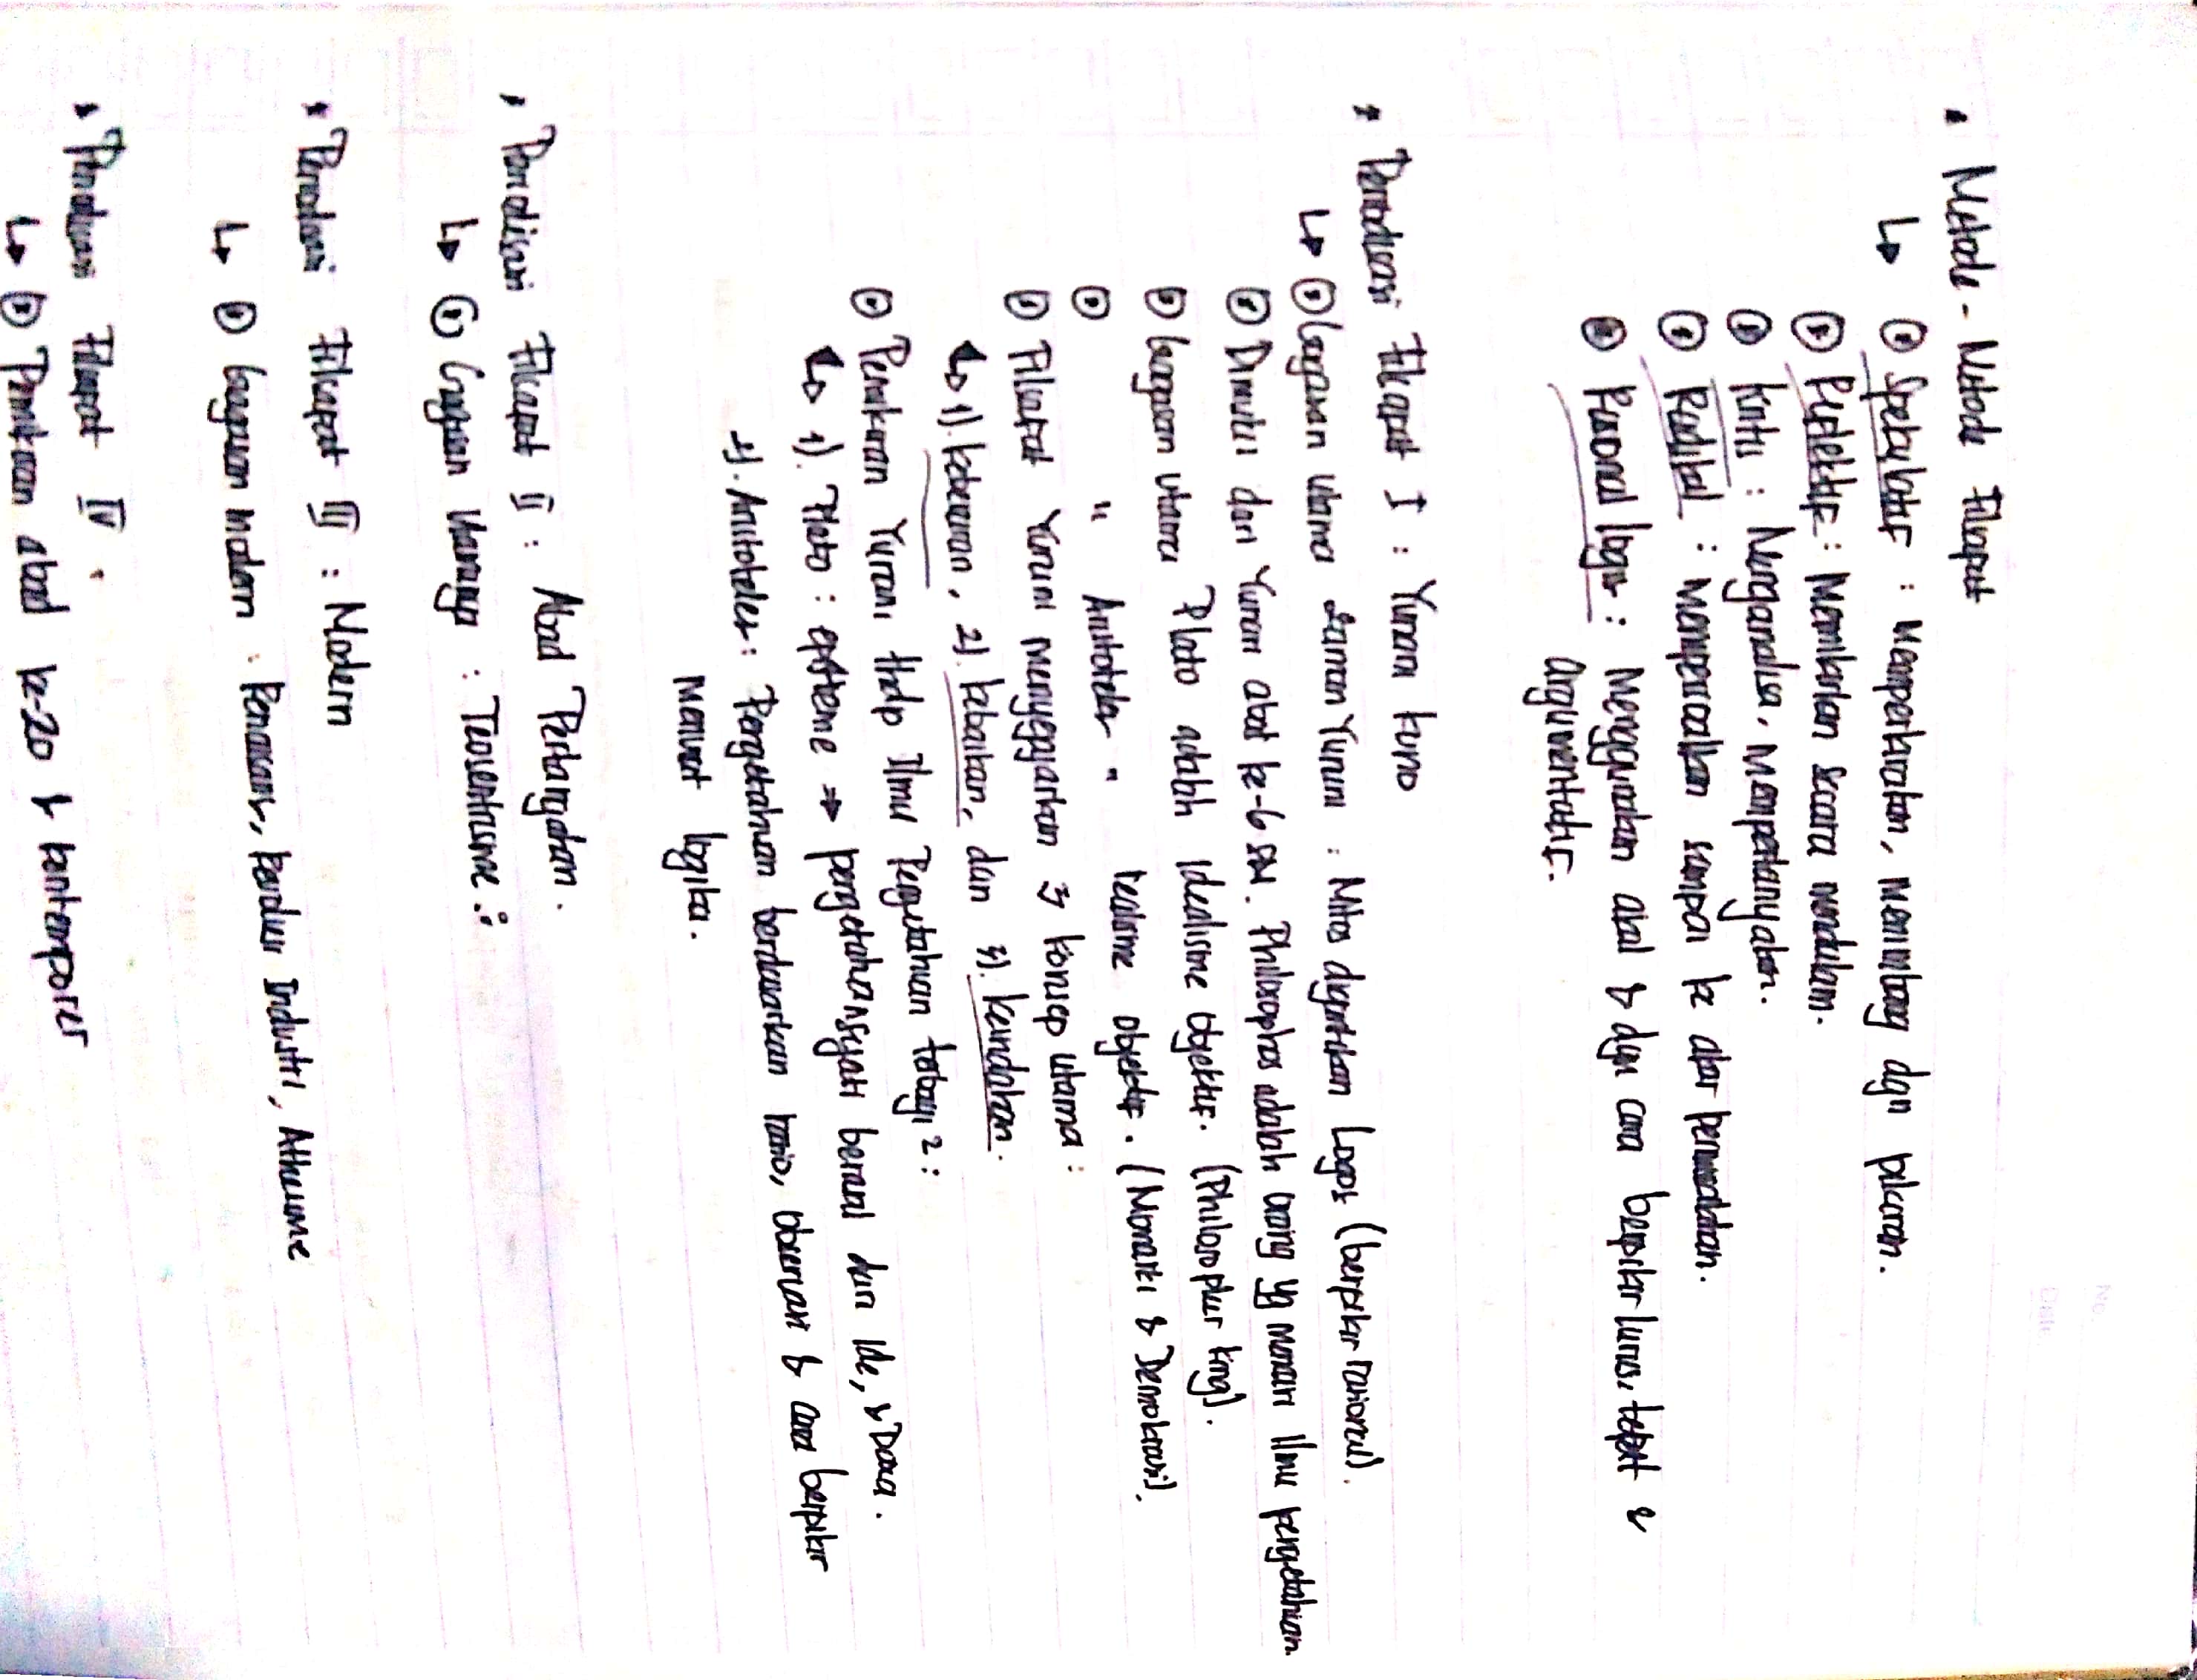 • Metode-Metode Filsafat
↳ Spekulatif : Memperkirakan, menimbang dgn pikiran.
Reflektif : Memikirkan secara mendalam.
Kritis : Menganalisa, mempertanyakan.
Radikal : mempersoalkan sampai ke akar permasalahan.
Rasional logis : Menggunakan akal & dgn cara berpikir lurus, tepat &
argumentatif.
• Periodisasi Filsafat I : Yunani Kuno
↳ Gagasan utama zaman Yunani : Mitos digantikan Logos (berpikir rasional).
Dimulai dari Yunani abad ke-6 SM. Philosophos adalah orang yg mencari ilmu pengetahuan
Gagasan utama Plato adalah idealisme objektif. (Philosophur king).
" Aristoteles " realisme objektif. (Monarki & Demokrasi).
Filsafat Yunani mengejarkan → konsep utama :
↳ 1). kebenaran, 2). kebaikan, dan 3). keindahan.
Pemikiran Yunani thdp Ilmu Pengetahuan terbagi² :
↳ 1). Plato : episteme ⇒ pengetahuan sejati berasal dari ide, & Dasa.
2). Aristoteles : Pengetahuan berdasarkan rasio, observasi & cara berpikir
menurut logika.
• Periodisasi Filsafat II : Abad Pertengahan.
↳ Gagasan utamanya : Teosentrisme :
• Periodisasi Filsafat III : Modern
↳ Gagasan modern : Renaisans, Revolusi Industri, Atheisme
• Periodisasi Filsafat IV :
↳ Pemikiran abad ke-20 & kontemporer